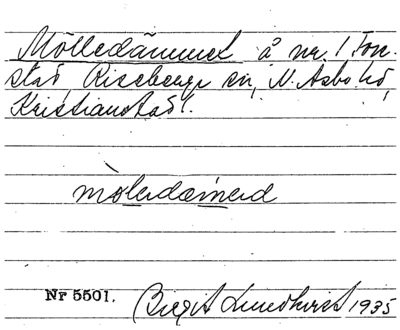 Mölledämmet å nr. 1 Fon-
stad, Riseberga sn, N. Åsbo hd,
Kristianstad l.
mòlədæməd
Nr 5501.
Birgit Lundkvist 1935